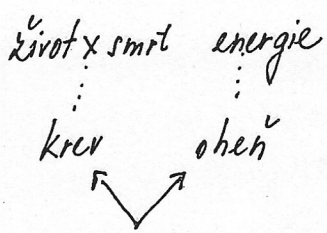 život x smrt energie
krev oheň